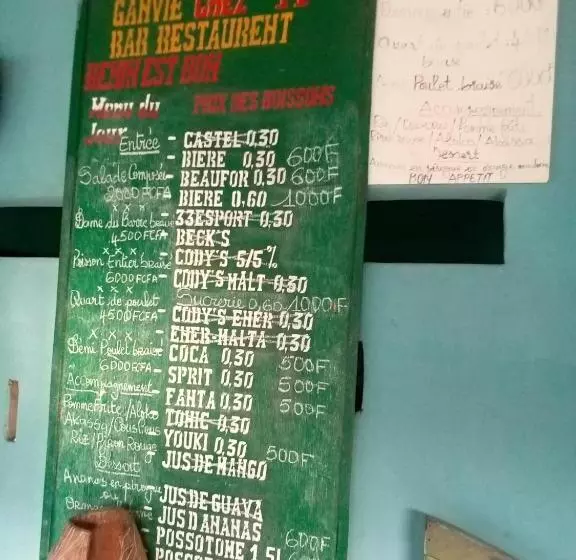 GANVIE CHEZ
BAR RESTAURENT
BENIN EST BON
Menu du
Jour
PRIX DES BOISSONS
Entrée
Salade Composée
2000FCFA
x x x
Dame du Barre braisé
4500FCFA
x x x
Poisson Entier braisé
6000FCFA
x x x
Quart de poulet
4500FCFA
x x x
Demi Poulet braisé
6000FCFA
Accompagnement
Pommefrite/Aloko
Akassa/Couscous
Riz/Piron Rouge
Dessert
Ananas en pirogue
ou
Orange
- CASTEL 0,30
- BIERE 0,30 600F
- BEAUFOR 0,30 600F
BIERE 0,60 1000F
- 33ESPORT 0,30
BECK'S
- CODY'S 5/5%
- CODY'S MALT 0,30
Sucrerie 0,60 1000F
- CODY'S EHER 0,30
- EHER-MALTA 0,30
COCA 0,30 500F
- SPRIT 0,30 500F
FANTA 0,30 500F
- TONIC 0,30
YOUKI 0,30 500F
- JUS DE MANGO
- JUS DE GUAVA
- JUS D ANANAS
- POSSOTOME 1.5L 600F
Quart de poulet
braisé
Poulet braisé
Accompagnement
Riz / Couscous / Pomme frite
Dessert
BON APPETIT